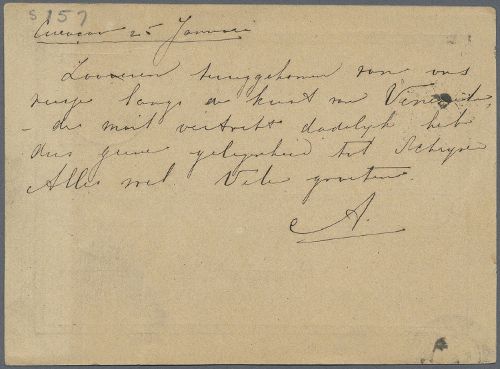 S 157
Curaçao 25 Januari
Zooeven teruggekomen van ons
reisje langs de kust van Venezuela
– de mail vertrekt dadelijk heb
dus geene gelegenheid tot schrijven
Alles wel. Vele groeten.
A.